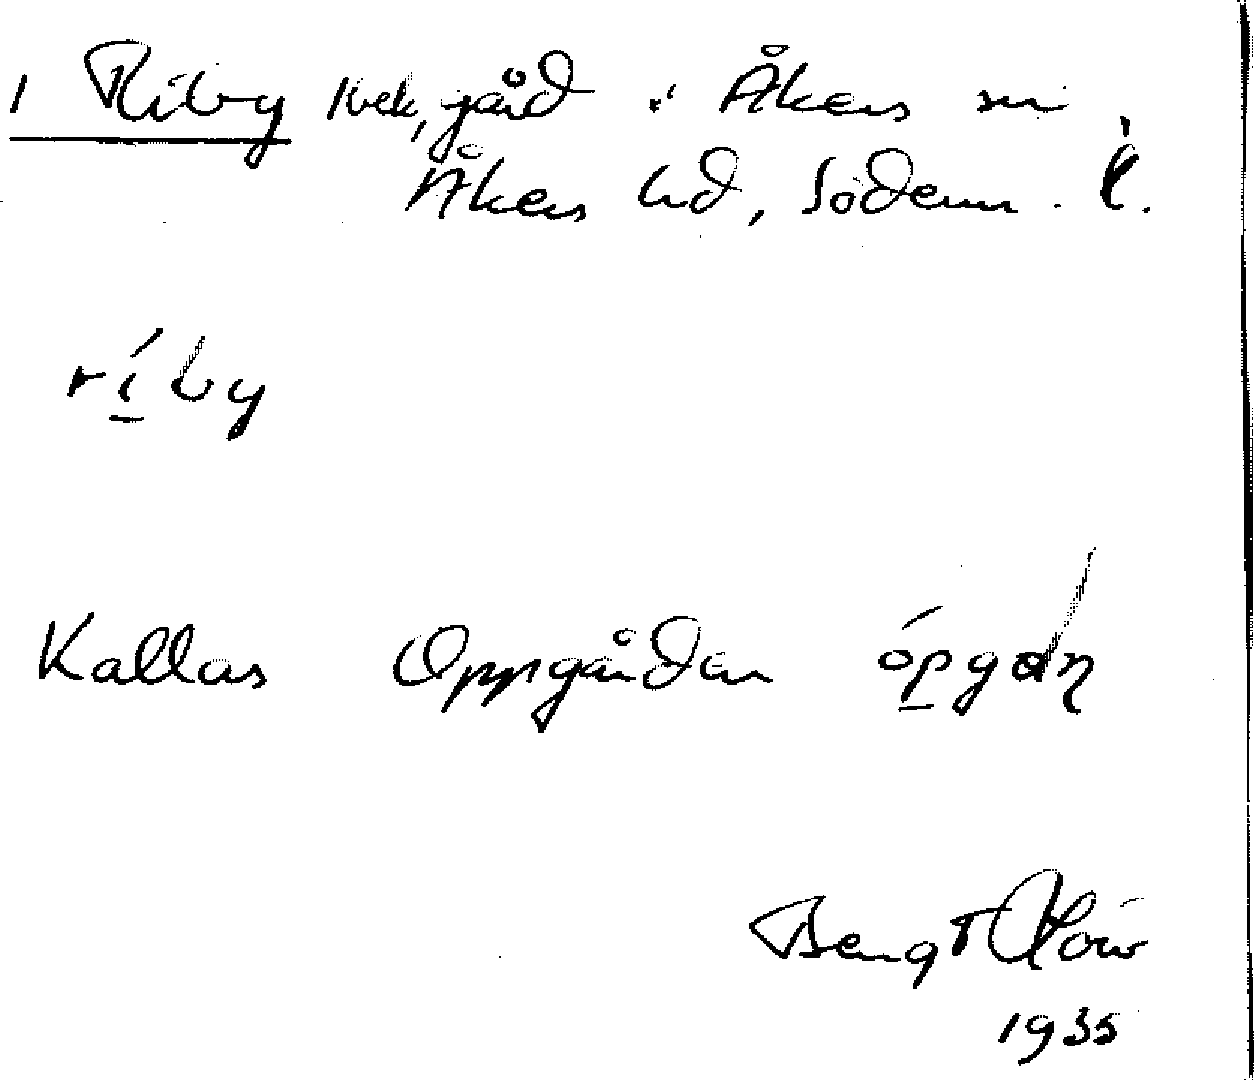 1 Riby gård i Åkers sn
Åkers hd, Söderm. l.
ríby
Kallas Oppgården
Bengt
1935